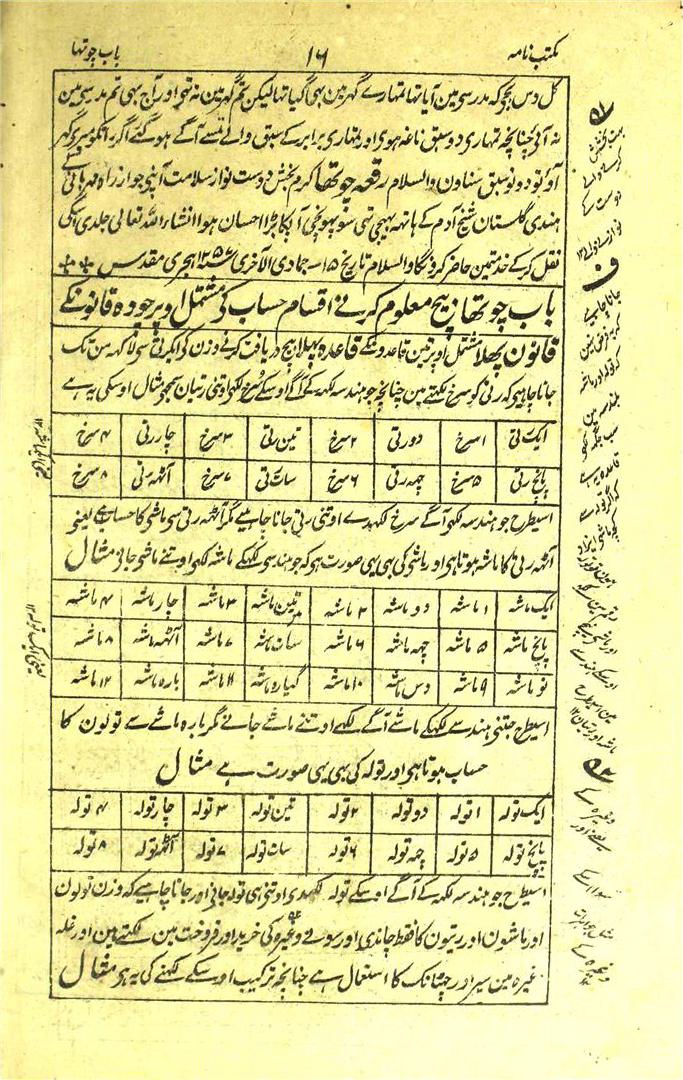 مکتب نامہ ۱۶ باب چوتھا
کل دس بجی کہ مدرسی مین آیا تھا تمہارے گہر مین بہی گیا تھا لیکن تم گہر مین نہ تہی اور آج بہی تم مدرسی مین
نہ آئی چنانچہ تمہاری دو سبق ناغہ ہوی اور تمہاری برابر کے سبق والے تمسے آگے ہو گئے اگر اتکو میری گہر
آؤ تو دونو سبق سناون والسلام رقعہ چوتھا کرم بخش دوست نواز سلامت آپنی جو از راہ مہربانی
ہندی گلستان شیخ آدم کے ہاتہہ بہیجی تہی سو پہونچی آپکا بڑا احسان ہوا انشاء اللہ تعالی جلدی اسکی
نقل کر کے خدمتمین حاضر کرونگا والسلام تاریخ ۱۵ جمادی الآخری سنہ ۱۲۵۷ ہجری مقدس
باب چوتھا بیچ معلوم کرنے اقسام حساب کی مشتمل اوپر چودہ قانونکے
قانون پہلا مشتمل اوپر تین قاعدونکے قاعدہ پہلا بیچ دریافت کرنے وزن کو اکبرتی سی لاکہہ من تک
جانا چاہیی کہ رتی کو سرخ لکہتے ہین چنانچہ جو ہندسہ لکہہ کے آگے اوسکے سرخ لکہو اوتنی رتیان سمجہو مثال اوسکی یہ ہے
ایک رتی ۱ سرخ دو رتی ۲ سرخ تین رتی ۳ سرخ چار رتی ۴ سرخ
پانچ رتی ۵ سرخ چہہ رتی ۶ سرخ سات رتی ۷ سرخ آٹہہ رتی ۸ سرخ
اسیطرح جو ہندسہ لکہو آگے سرخ لکہدے اوتنی رتی جانا چاہیے مگر آٹہہ رتی سی ماشی کا حساب ہے یعنی
آٹہہ رتی کا ماشہ ہوتا ہی اور ماشی کی بہی یہی صورت ہی کہ جو ہندسی لکہکے ماشہ لکہو اوتنے ماشی جانی مثال
ایک ماشہ ۱ ماشہ دو ماشہ ۲ ماشہ تین ماشہ ۳ ماشہ چار ماشہ ۴ ماشہ
پانچ ماشہ ۵ ماشہ چہہ ماشہ ۶ ماشہ سات ماشہ ۷ ماشہ آٹہہ ماشہ ۸ ماشہ
نو ماشہ ۹ ماشہ دس ماشہ ۱۰ ماشہ گیارہ ماشہ ۱۱ ماشہ بارہ ماشہ ۱۲ ماشہ
اسیطرح جتنی ہندسے لکہکے ماشے آگے لکہے اوتنے ماشے جانے مگر بارہ ماشے سے تولون کا
حساب ہوتا ہی اور تولہ کی بہی یہی صورت ہے مثال
ایک تولہ ۱ تولہ دو تولہ ۲ تولہ تین تولہ ۳ تولہ چار تولہ ۴ تولہ
پانچ تولہ ۵ تولہ چہہ تولہ ۶ تولہ سات تولہ ۷ تولہ آٹہہ تولہ ۸ تولہ
اسیطرح جو ہندسہ لکہہ کے آگے اوسکے تولہ لکہدی اوتنی ہی تولہ جانی اور جانا چاہیے کہ وزن تولون
اور ماشون اور رتیون کا فقط چاندی اور سونے وغیرہ کی خرید اور فروخت مین لکہتے ہین اور غلہ
غیرہ مین سیر اور چہٹانک کا استعمال ہے چنانچہ ترکیب اوسکے لکہنے کی یہ ہی مثال
۵۱
بہت بخشش
کرنے والے
دوست کے
نوازنے والے ۱۲
ف
جانا چاہیے